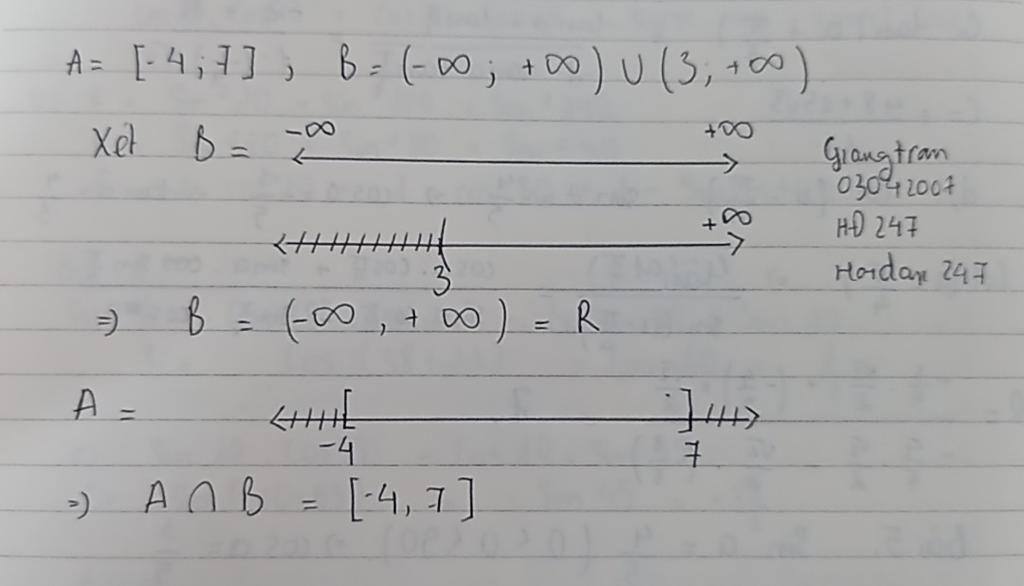 A = [-4; 7], B = (-∞; +∞) ∪ (3; +∞)
Xét B = -∞ +∞
+∞
3
Giangtran
03042007
HD 247
Hoidap 247
=) B = (-∞, + ∞) = R
A =
-4 7
=) A ∩ B = [-4, 7]